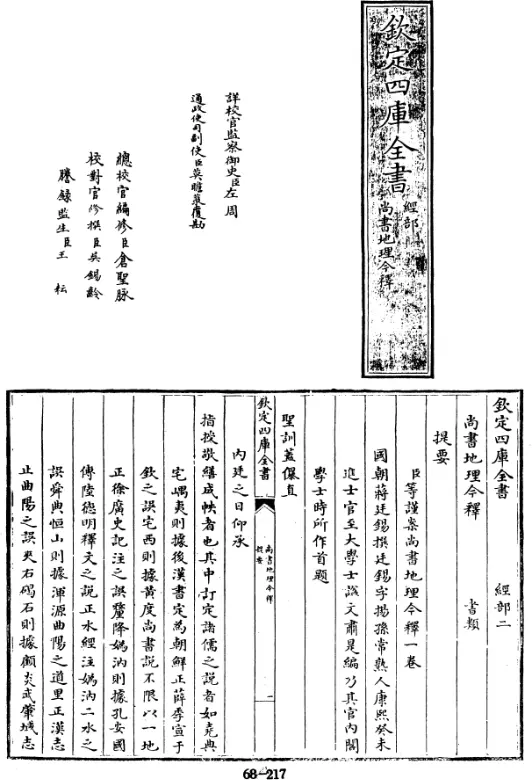 欽定四庫全書
經部
尚書地理今釋
詳校官監察御史臣左周
通政使司副使臣莫瞻菉覆勘
總校官編修臣倉聖脉
校對官修撰臣吳錫齡
謄錄監生臣王耘
欽定四庫全書 經部二
尚書地理今釋 書類
提要
臣等謹案尚書地理今釋一卷
國朝蔣廷錫撰廷錫字揚孫常熟人康熙癸未
進士官至大學士諡文肅是編乃其官內閣
學士時所作首題
聖訓蓋儤直
內廷之日仰承
指授敬繕成帙者也其中訂定諸儒之說者如堯典
宅嵎夷則據後漢書定為朝鮮正薛季宣于
欽之誤宅西則據黃度尚書說不限以一地
正徐廣史記注之誤釐降媯汭則據孔安國
傳陸德明釋文之說正水經注媯汭二水之
誤舜典恒山則據渾源曲陽之道里正漢志
止曲陽之誤夾右碣石則據顧炎武肇域志
欽定四庫全書
尚書地理今釋
提要
一
68-217